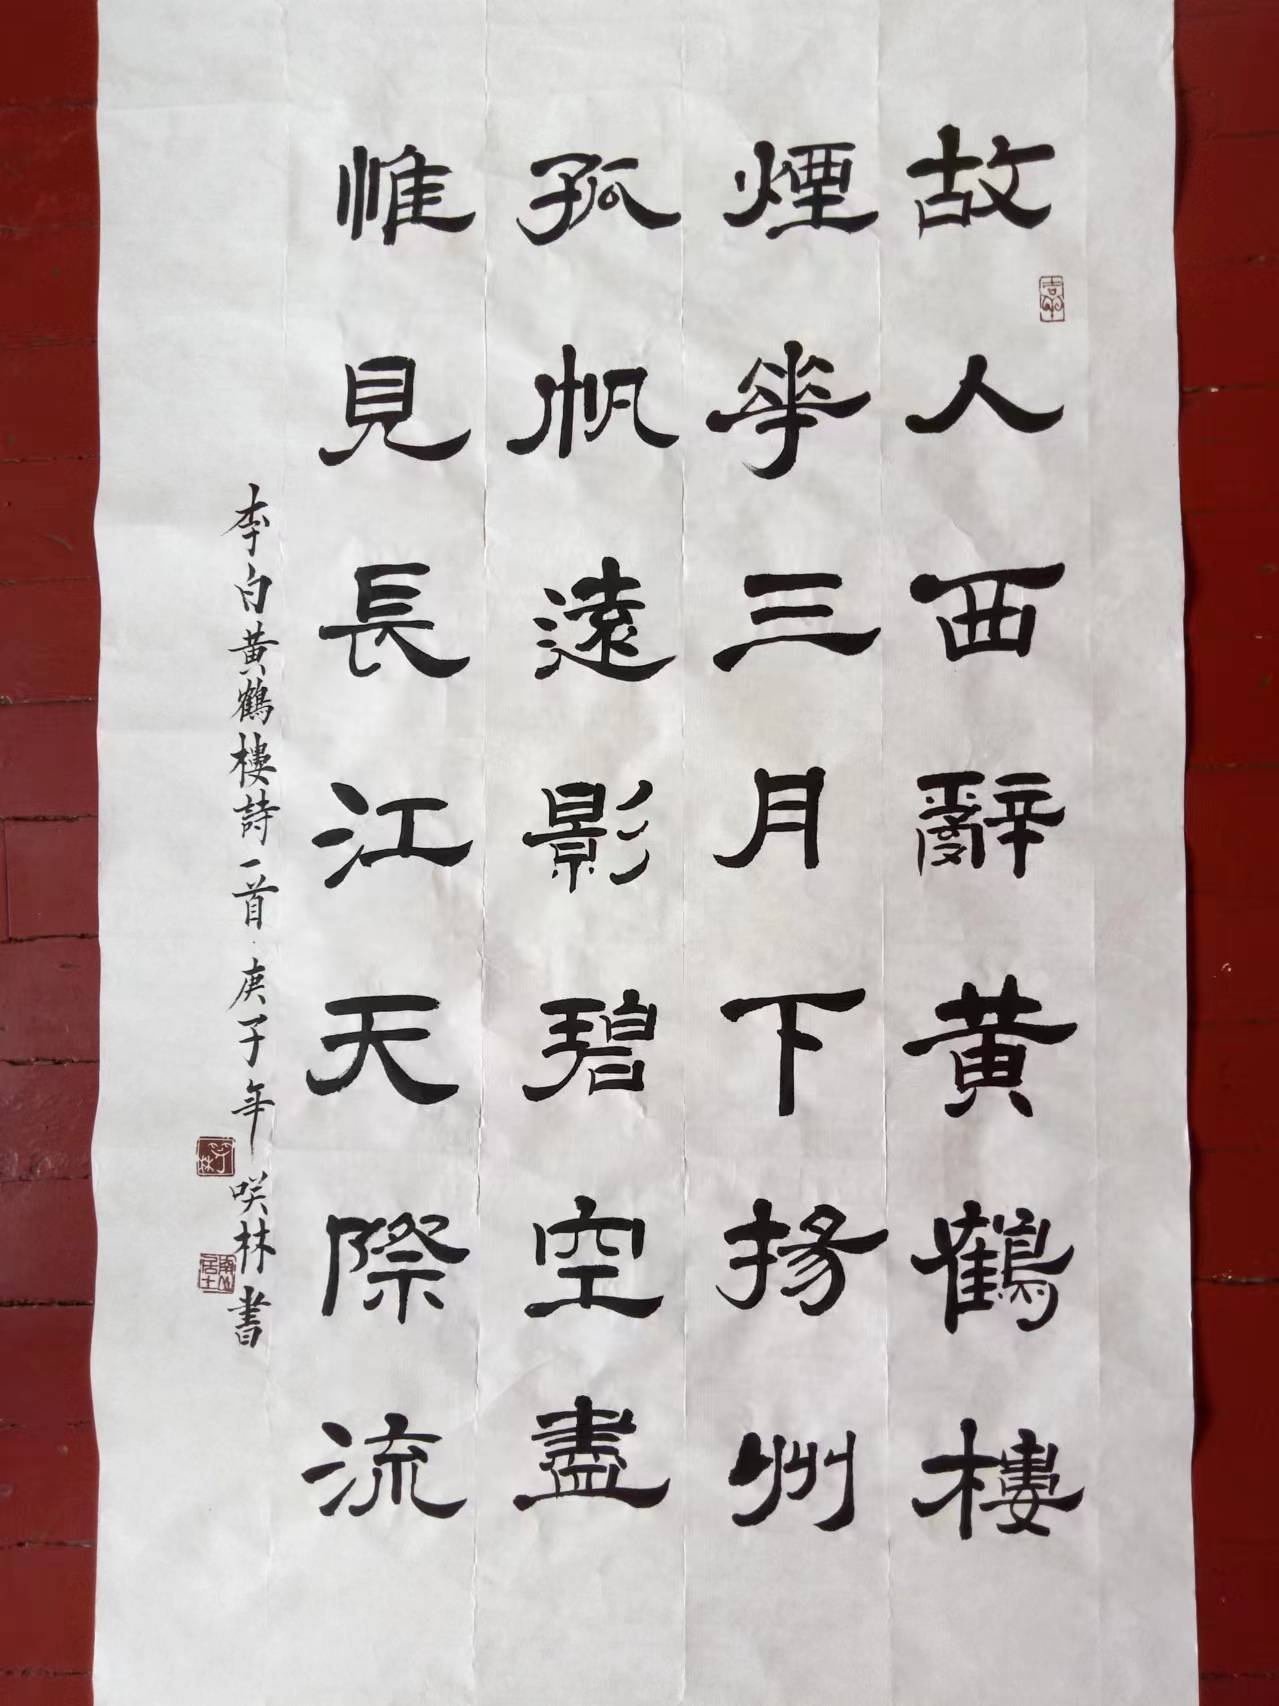 故人西辭黃鶴樓
煙華三月下揚州
孤帆遠影碧空盡
惟見長江天際流
李白黃鶴樓詩一首庚子年咲林書